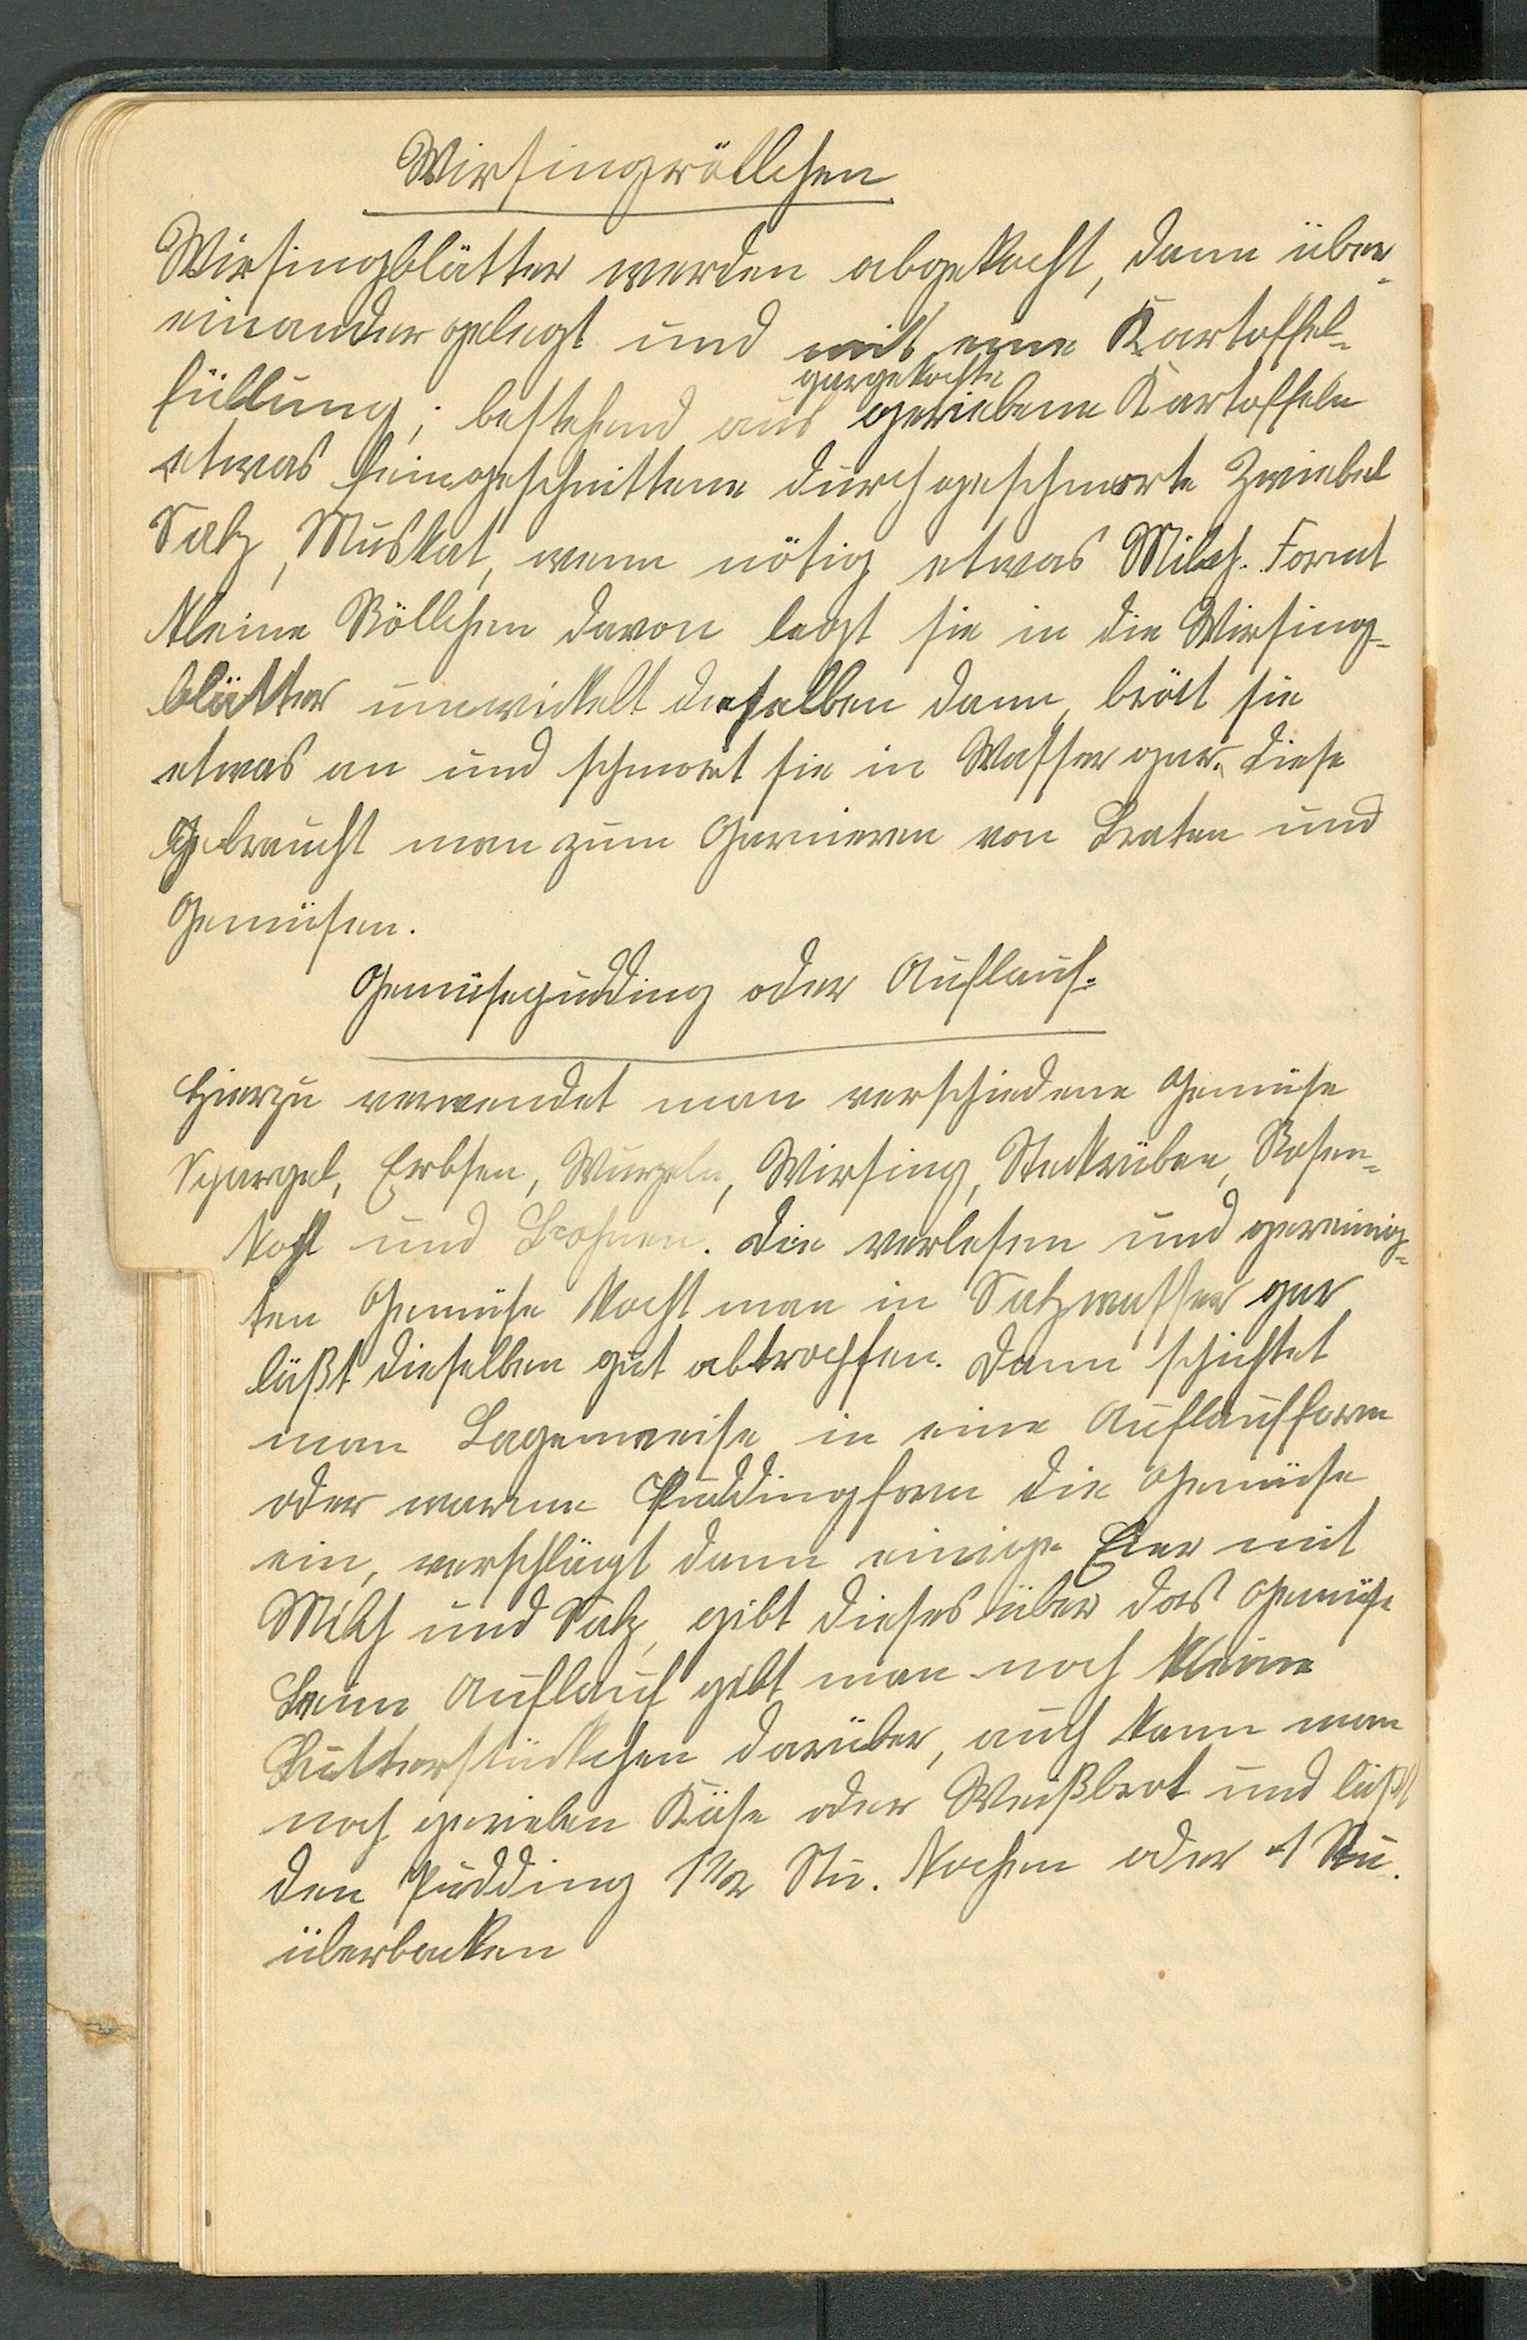 Wirsingröllchen
Wirsingblätter werden abgekocht, dann über-
einander gelegt und mit eine Kartoffel-
gargekochte
füllung; bestehend aus geriebene Kartoffeln
etwas feingeschnittene durchgeschmorte Zwiebel
Salz, Muskat, wenn nötig etwas Milch. Formt
kleine Röllchen davon legt sie in die Wirsing-
blätter umwickelt dieselben dann, brät sie
etwas an und schmort sie in Wasser gar. Diese
Gebraucht man zum Garnieren von Braten und
Gemüsen.
Gemüsepudding oder Auflauf.
Hierzu verwendet man verschiedene Gemüse
Spargel, Erbsen, Wurzeln, Wirsing, Steckrüben, Rosen-
kohl und Bohnen. Die verlesen und gereinig-
ten Gemüse kocht man in Salzwasser gar
läßt dieselben gut abtropfen. Dann schichtet
man Lagenweise in eine Auflaufform
oder warme Puddingform die Gemüse
ein, verschlägt dann einige Eier mit
Milch und Salz, gibt dieses über das Gemüse
Beim Auflauf gibt man noch kleine
Butterstückchen darüber, auch kann man
noch gerieben Käse oder Weißbrot und läßt
den Pudding 1 1/2 Stu. kochen oder 1 Stu.
überbacken